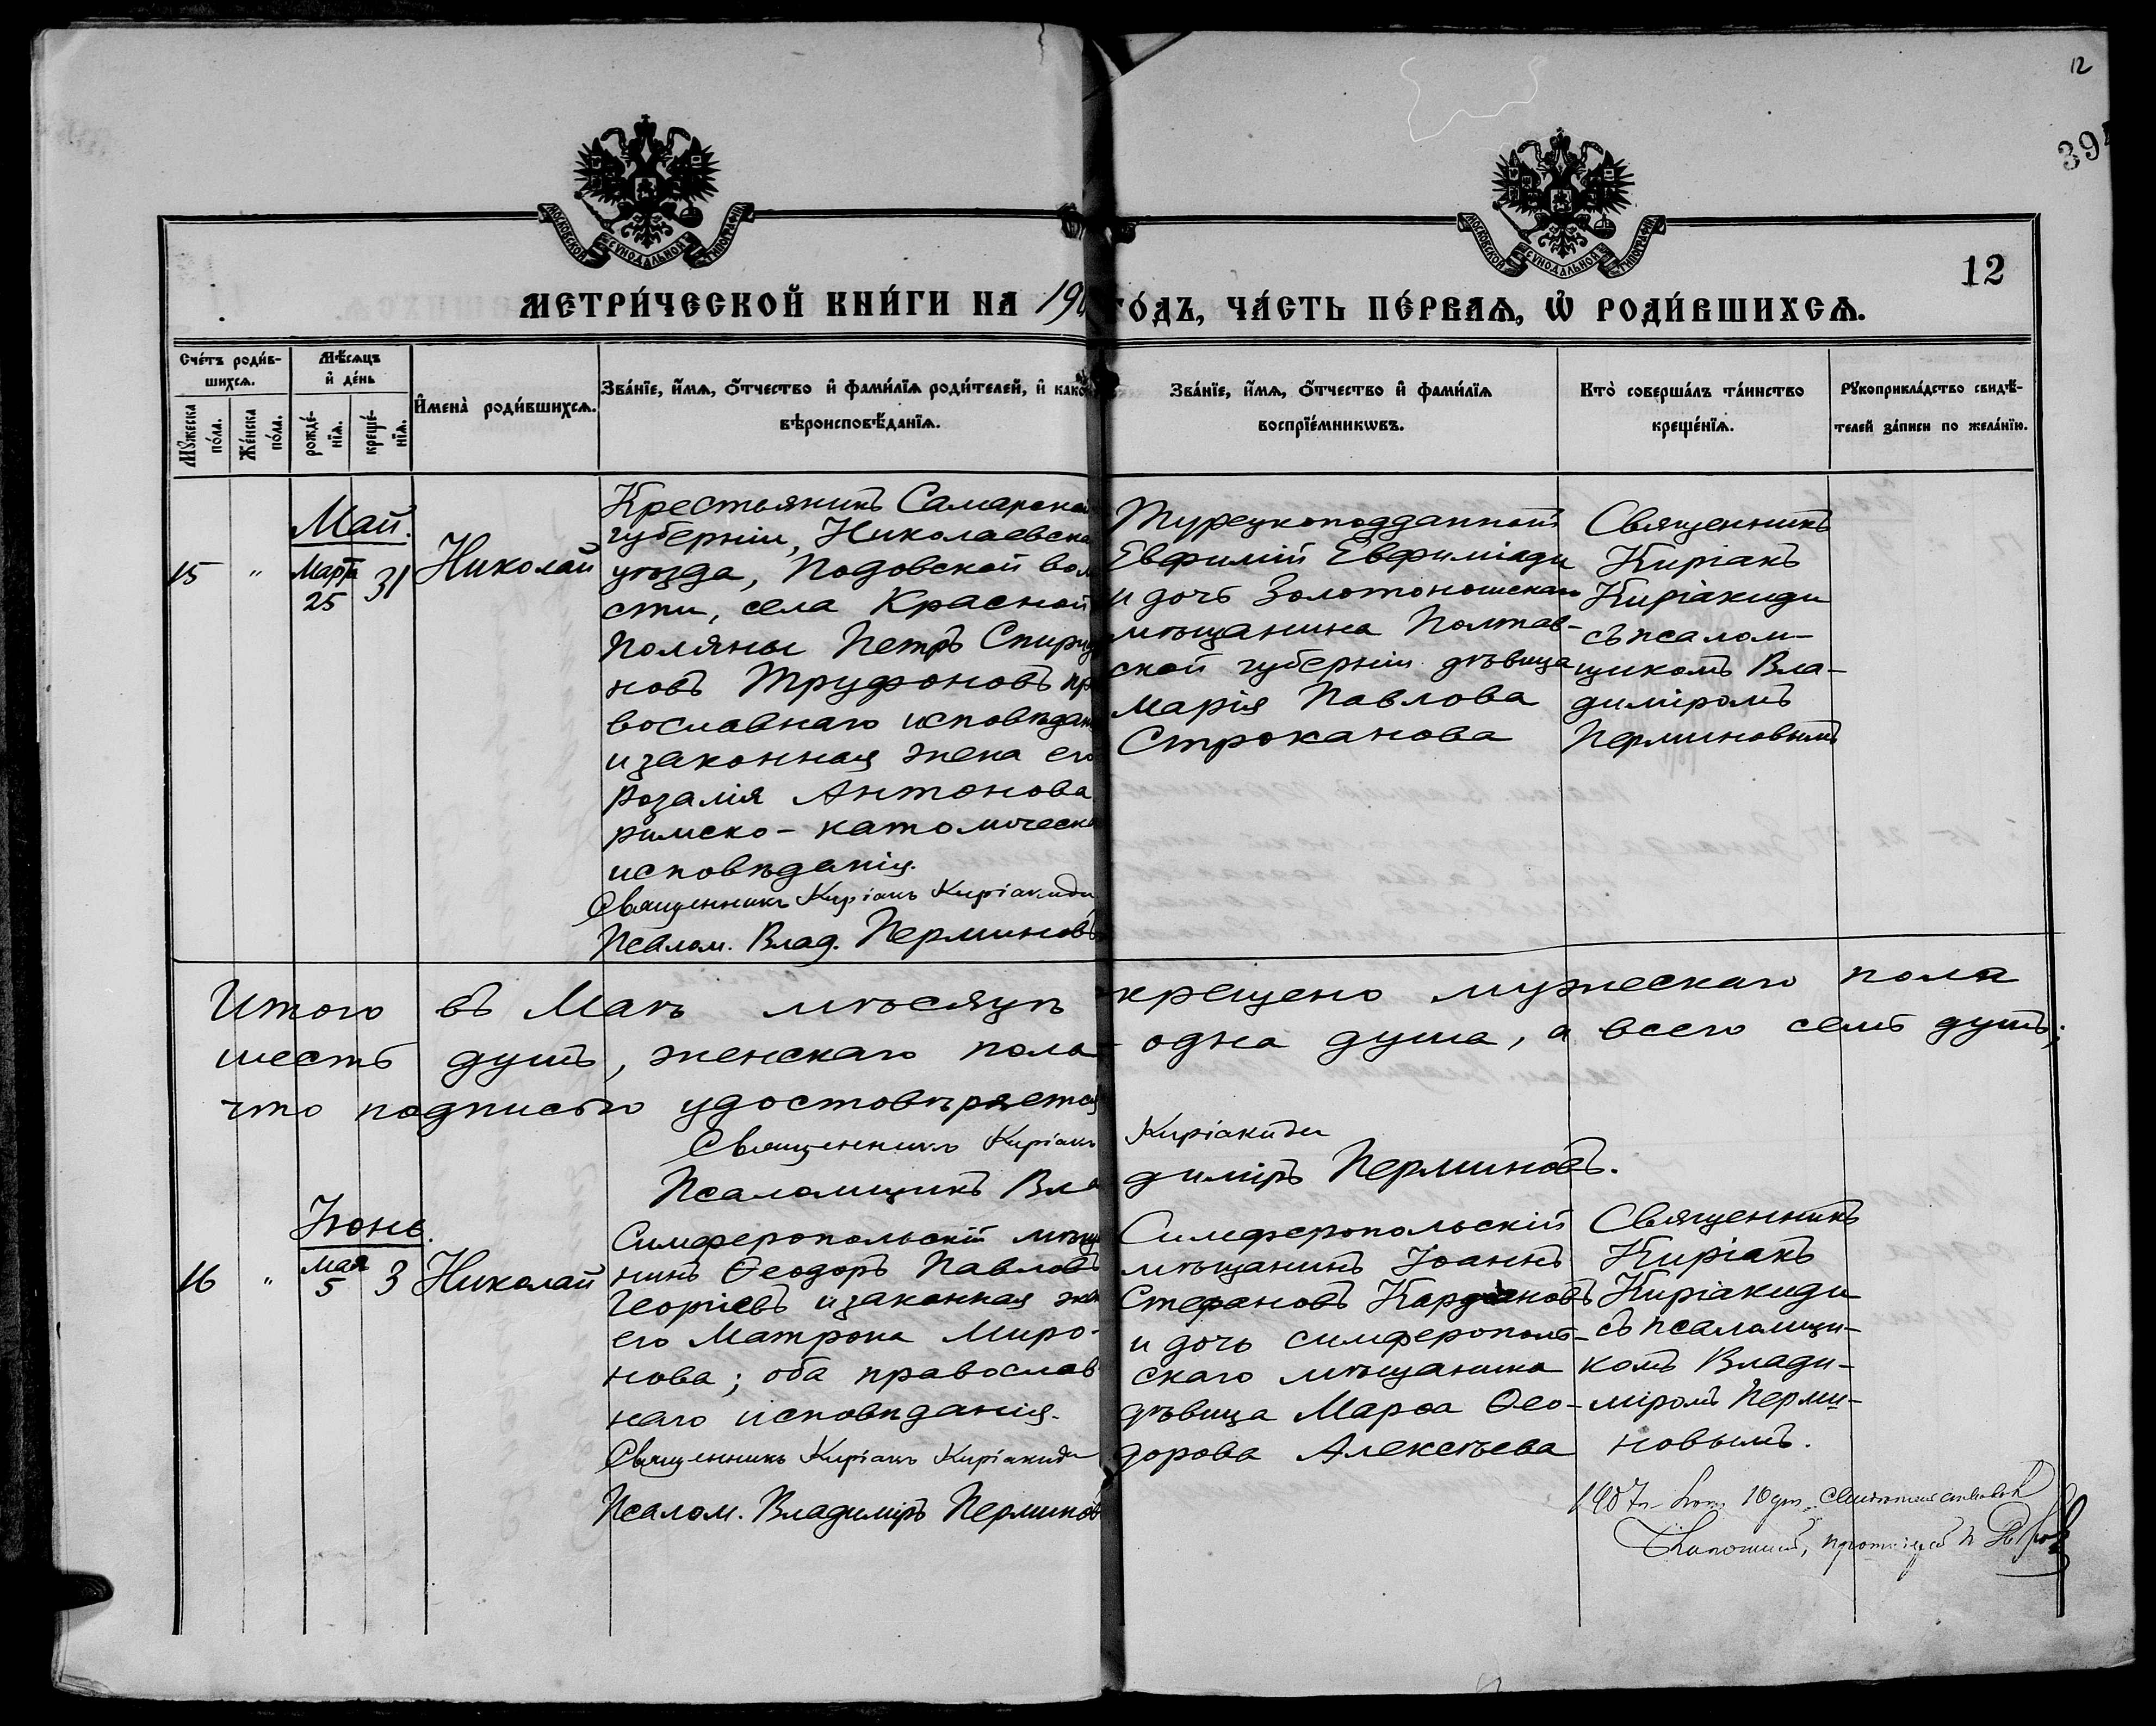 12
394
МОСКОВСКОЙ СѴНОДАЛЬНОЙ ТИПОГРАФІИ
МОСКОВСКОЙ СѴНОДАЛЬНОЙ ТИПОГРАФІИ
12
МЕТРИ́ЧЕСКОЙ КНИ́ГИ НА 190 ГО́ДЪ, ЧА́СТЬ ПЕ́РВАѦ, Ѡ҆ РОДИ́ВШИХСѦ.
Сче́тъ роди́в-
шихсѧ.
Мꙋ́жеска по́ла.
Же́нска по́ла.
Мѣ́сѧцъ
и҆ де́нь
рожде́-нїѧ.
креще́-нїѧ.
И҆мена̀ роди́вшихсѧ.
Зва́нїе, и҆́мѧ, ѻ҆́тчество и҆ фами́лїѧ роди́телей, и҆ како
вѣроисповѣ́данїѧ.
Зва́нїе, и҆́мѧ, ѻ҆́тчество и҆ фами́лїѧ
воспрїе́мникѡвъ.
Кто̀ соверша́лъ та́инство
креще́нїѧ.
Рꙋкоприкла́дство свидѣ́-
телей за́писи по жела́нїю.
Май.
15 " Марта 25 31 Николай
Крестьянинъ Самарской
губерніи, Николаевска
уѣзда, Подовской вол
сти, села Красной
Поляны Петръ Спиридо
новъ Труфоновъ пра
вославнаго исповѣдан
и законная жена его
Розалія Антонова
римско-католическа
исповѣданія.
Священникъ Киріакъ Киріакиди
Псалом. Влад. Перминовъ
Турецкоподданный
Евфимій Евфиміади
и дочь Золотоношскаго
мѣщанина Полтав-
ской губерніи дѣвица
Марія Павлова
Строканова
Священникъ
Киріакъ
Киріакиди
съ псалом-
щикомъ Вла-
диміромъ
Перминовымъ
Итого въ Маѣ мѣсяцѣ крещено мужескаго пола
шесть душъ, женскаго пола одна душа, а всего семь душъ;
что подписью удостовѣряется
Священникъ Киріакъ Киріакиди
Псаломщикъ Владиміръ Перминовъ.
Іюнь.
16 " мая 5 3 Николай
Симферопольскій мѣща
нинъ Ѳеодоръ Павловъ
Георгіевъ и законная жен
его Матрона Миро-
нова; оба православ
наго исповѣданія.
Священникъ Киріакъ Киріакиди
Псалом. Владиміръ Перминов
Симферопольскій
мѣщанинъ Іоаннъ
Стефановъ Кардіаковъ
и дочь симферополь-
скаго мѣщанина
дѣвица Марѳа Ѳео-
дорова Алексѣева
Священникъ
Киріакъ
Киріакиди
съ псаломщи-
комъ Влади-
міромъ Перми-
новымъ.
1907 г. 10 дня свидѣтельствовалъ
протоіерей